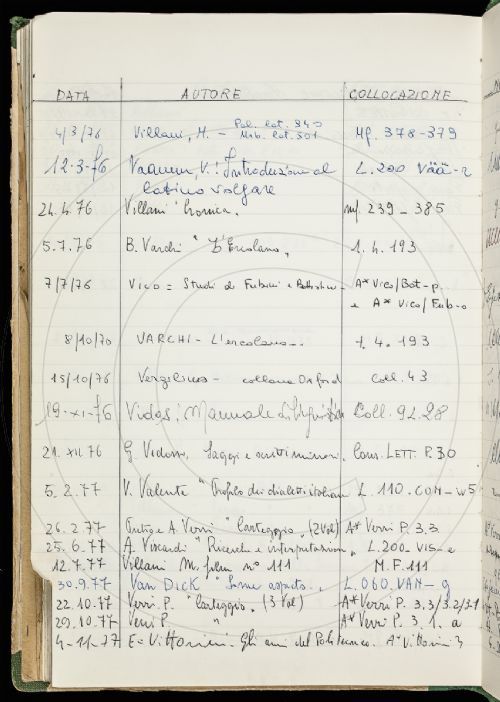 DATA AUTORE COLLOCAZIONE
4/3/76 Villani, M. - Pal. lat. 940 Mf. 378-379
Urb. lat. 301
12-3-76 Vaananen, V.: Introduzione al L.200 Vää-2
latino volgare
24.4.76 Villani "Cronica. mf. 239-385
5.7.76 B. Varchi "L'Ercolano„ 1.4.193
7/7/76 Vico = Studi di Fubini e A* Vico/Bot-p.
e A* Vico/Fub-o
8/10/70 VARCHI - L'ercolano.. 1.4.193
15/10/76 collana Oxford Coll. 43
19-XI-76 Vidos: Manuale di linguistica Coll. 92.28
21.XII.76 G. Vidossi, Saggi e scritti minori. Cons. LETT. P.30
5.2.77 V. Valente "Profilo dei dialetti italiani L.110.COM-W5
26.2.77 Pietro e A. Verri "Carteggio„ (2Vol) A* Verri P. 3.3
25.6.77 A. Viscardi "Ricerche e interpretazioni„ L.200-VIS-e
12.7.77 Villani M. film n° 111 M.F.111
30.9.77 Van Dick "Some aspects„. L.060.VAN-g
22.10.77 Verri P. "Carteggio„ (3 Vol) A* Verri P. 3.3/3.2/3.1
29.10.77 Verri P. " A* Verri P. 3.1.a
4-11-77 E. Vittorini. Gli anni del Politecnico. A* Vittorini 3